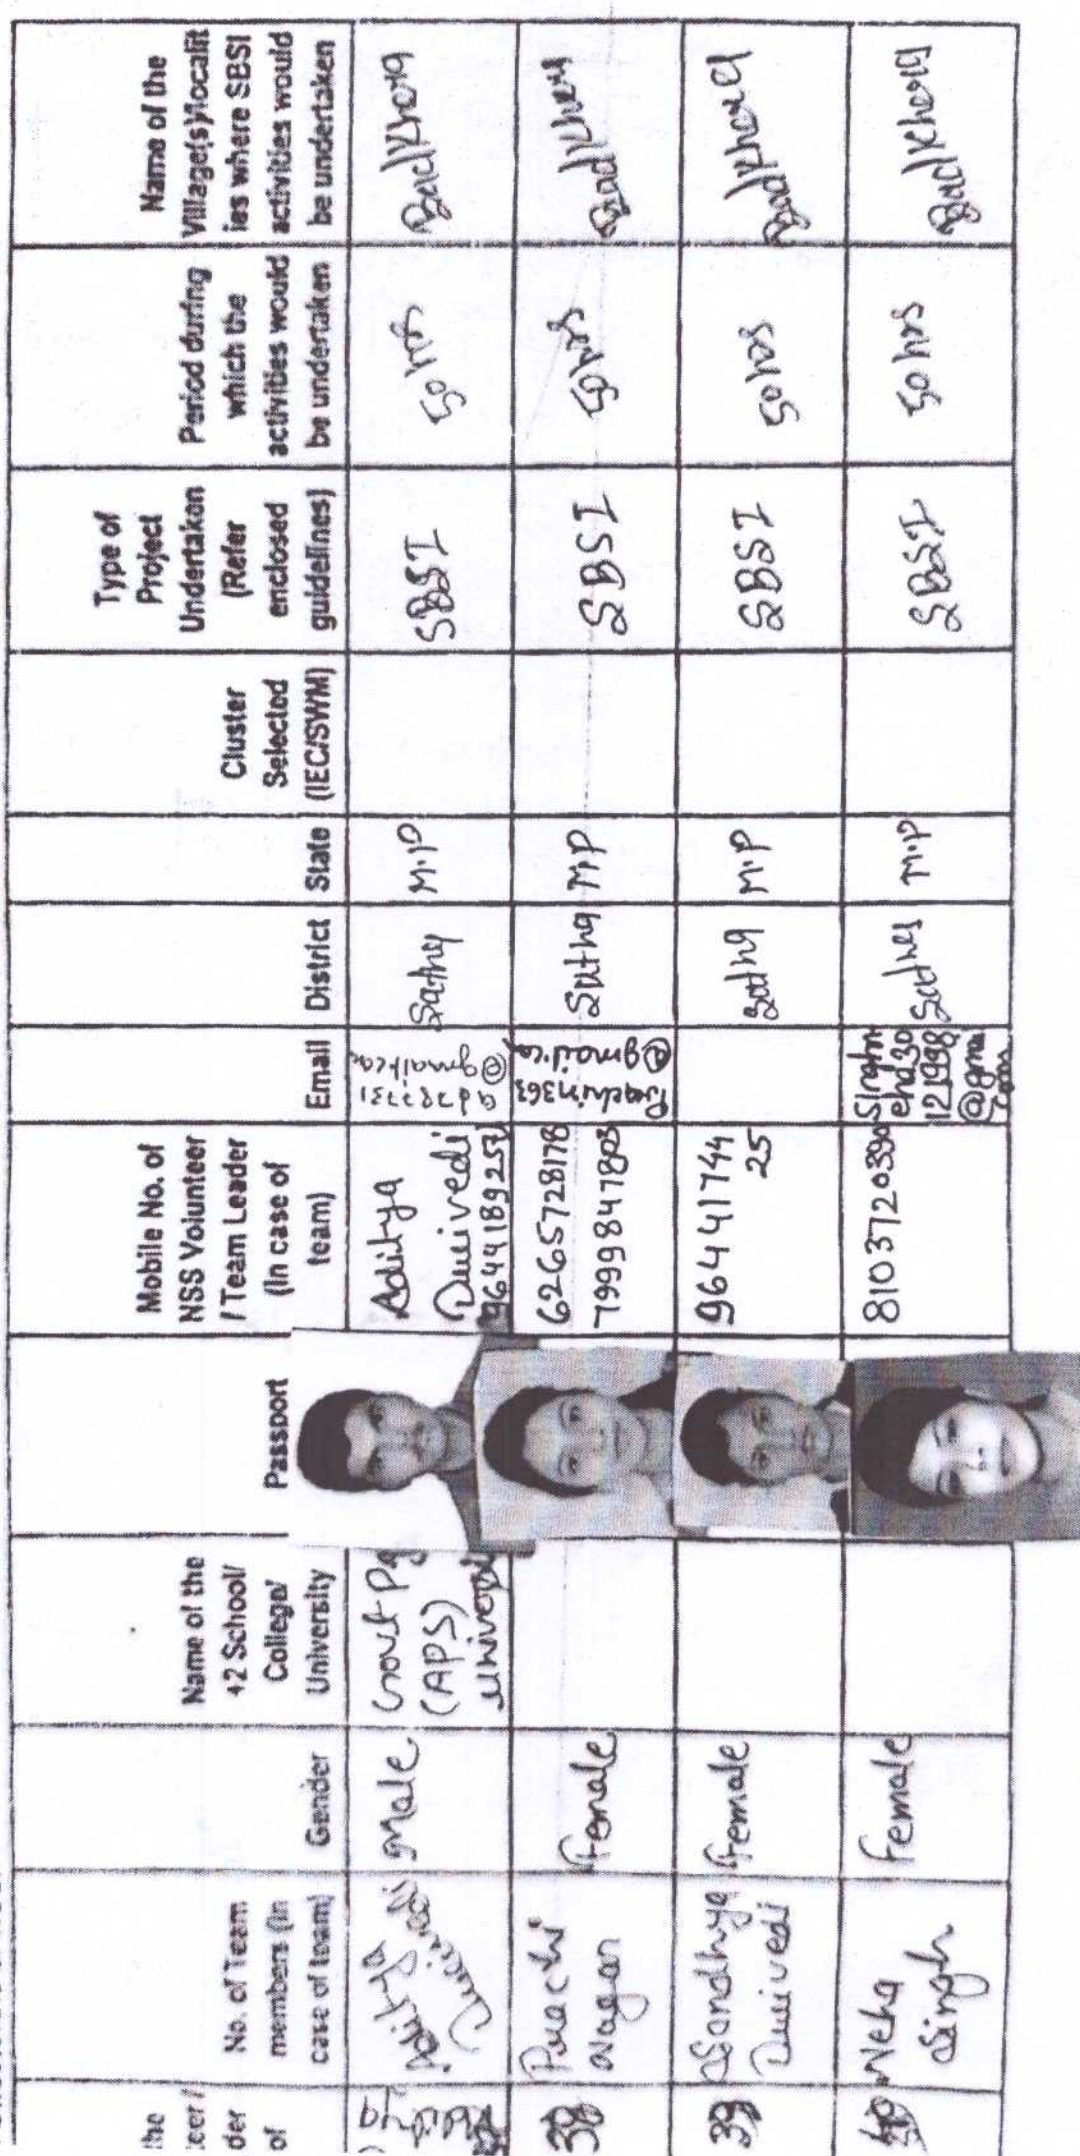 the
teer /
der
of
No. of Team
members (in
case of team)
Gender
Name of the
+2 School/
College/
University
Passport
Mobile No. of
NSS Volunteer
/ Team Leader
(In case of
team)
Email
District
State
Cluster
Selected
(IEC/SWM)
Type of
Project
Undertaken
(Refer
enclosed
guidelines)
Period during
which the
activities would
be undertaken
Name of the
Village(s)/localit
ies where SBSI
activities would
be undertaken
Aditya
Dwivedi
Male
Govt Pg
(APS)
Aditya
Dwivedi
9644189257
ad787731
@gmail.com
Satna
M.P
SBSI
50 hrs
Badkhera
38
Prachi
nagar
Female
6265728178
7999847803
@gmail.co
Satna
M.P
SBSI
50 hrs
Badkhera
39
Sandhya
Dwivedi
Female
96441744
25
Satna
M.P
SBSI
50 hrs
Badkhera
40
Neha
Singh
Female
8103720390
Singhn
eha30
121998
@gma
Satna
M.P
SBSI
50 hrs
Badkhera